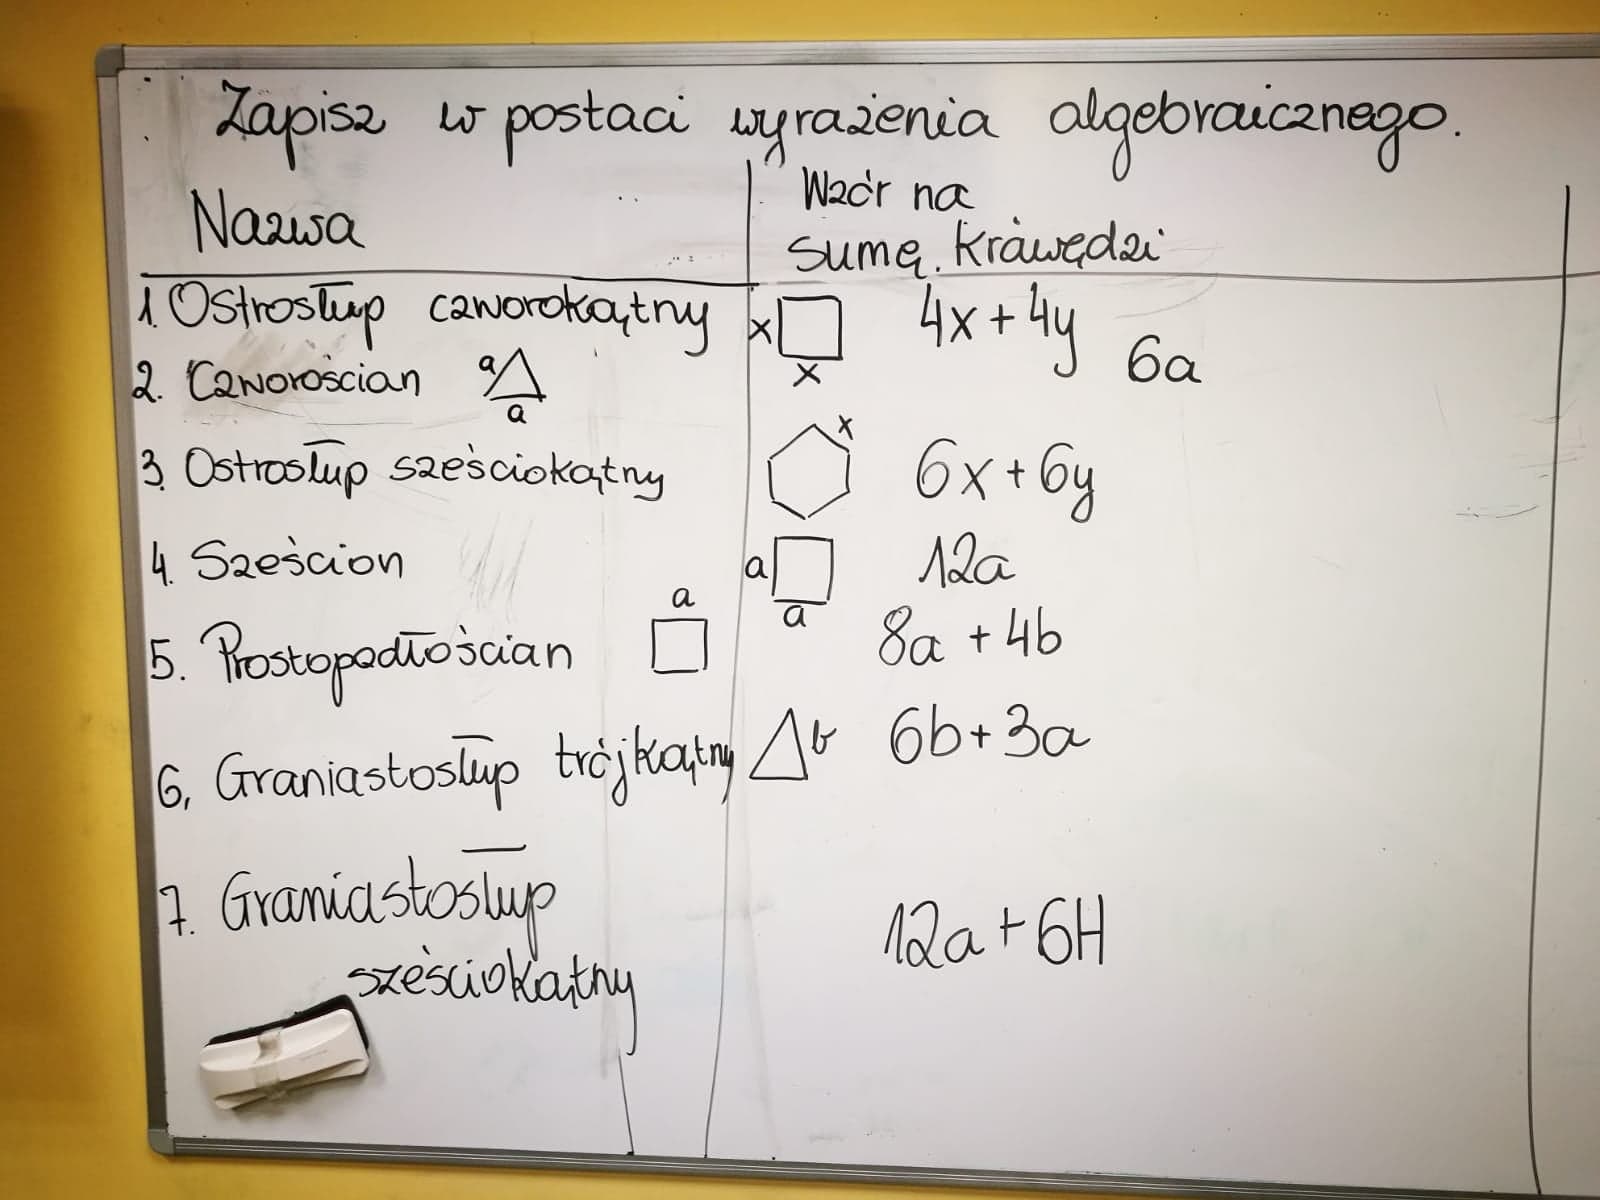 Zapisz w postaci wyrażenia algebraicznego.
Nazwa
Wzór na
sumę krawędzi
1. Ostrosłup czworokątny x x 4x + 4y
2. Czworościan a a 6a
3. Ostrosłup sześciokątny x 6x + 6y
4. Sześcian a a 12a
5. Prostopadłościan a 8a + 4b
6. Graniastosłup trójkątny b 6b + 3a
7. Graniastosłup
sześciokątny 12a + 6H